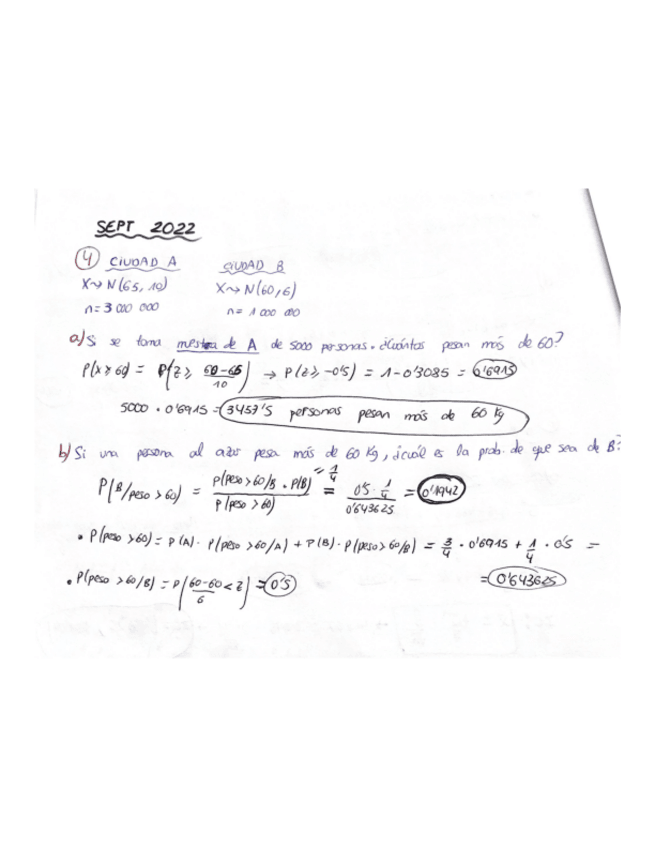 SEPT 2022
4 CIUDAD A CIUDAD B
X~>N(65, 10) X~>N(60, 6)
n = 3 000 000 n = 1 000 000
a) Si se toma mestra de A de 5000 personas. ¿Cuántos pesan más de 60?
P(X ≥ 60) = P(Z ≥ 60-65/10) → P(Z ≥ -0'5) = 1 - 0'3085 = 0'6915
5000 · 0'6915 = 3457'5 personas pesan más de 60 Kg
b) Si una persona al azar pesa más de 60 Kg, ¿cuál es la prob. de que sea de B?
P(B/peso > 60) = P(peso > 60/B · P(B) = 1/4 / P(peso > 60) = 0'5 · 1/4 / 0'643625 = 0'1942
• P(peso > 60) = P(A) · P(peso > 60/A) + P(B) · P(peso > 60/B) = 3/4 · 0'6915 + 1/4 · 0'5 =
• P(peso > 60/B) = P(60-60/6 < Z) = 0'5 = 0'643625